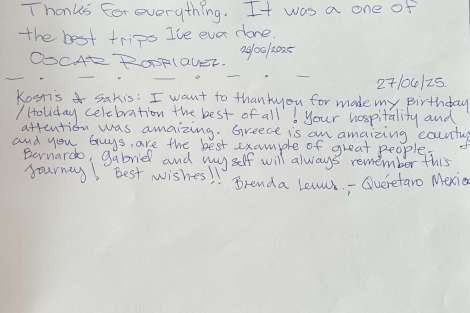 Thanks for everything. It was a one of
the best trips I've ever done.
OSCAR RODRIGUEZ. 29/06/2025
27/06/25.
Kostis & Sakis: I want to thankyou for made my Birthday
/Holiday celebration the best of all! Your hospitality and
attention was amaizing. Greece is an amaizing country
and you Guys, are the best example of great people.
Bernardo, Gabriel and myself will always remember this
Journey! Best wishes!! Brenda Lemus.- Querétaro Mexico